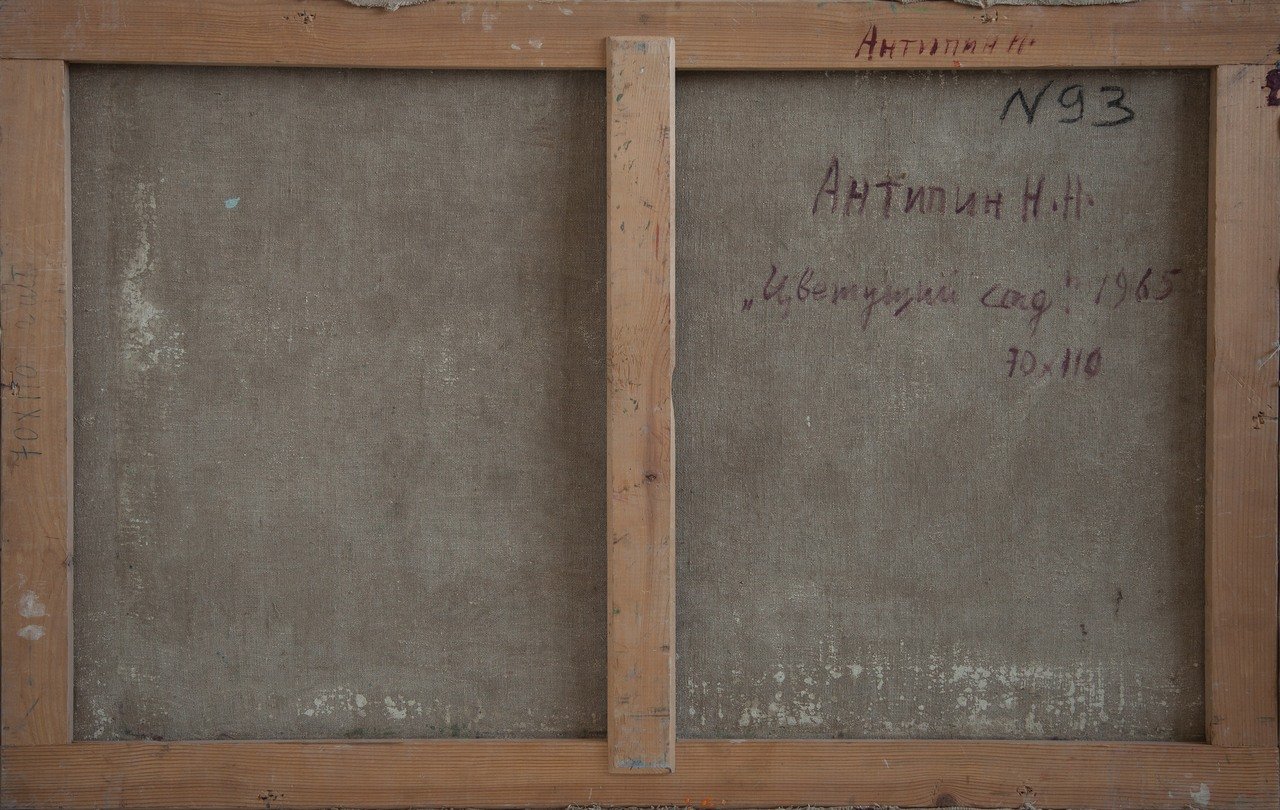 Антипин Н.
N 93
Антипин Н.Н.
„Цветущий сад". 1965
70х110
70Х110